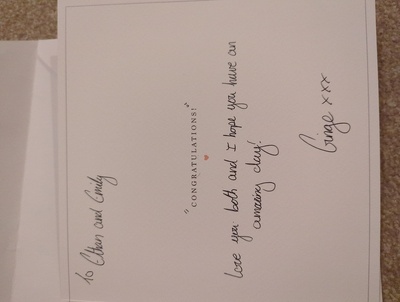 To Ethan and Emily
"CONGRATULATIONS!"
Love you both and I hope you have an
amazing day!
Ginge xxx